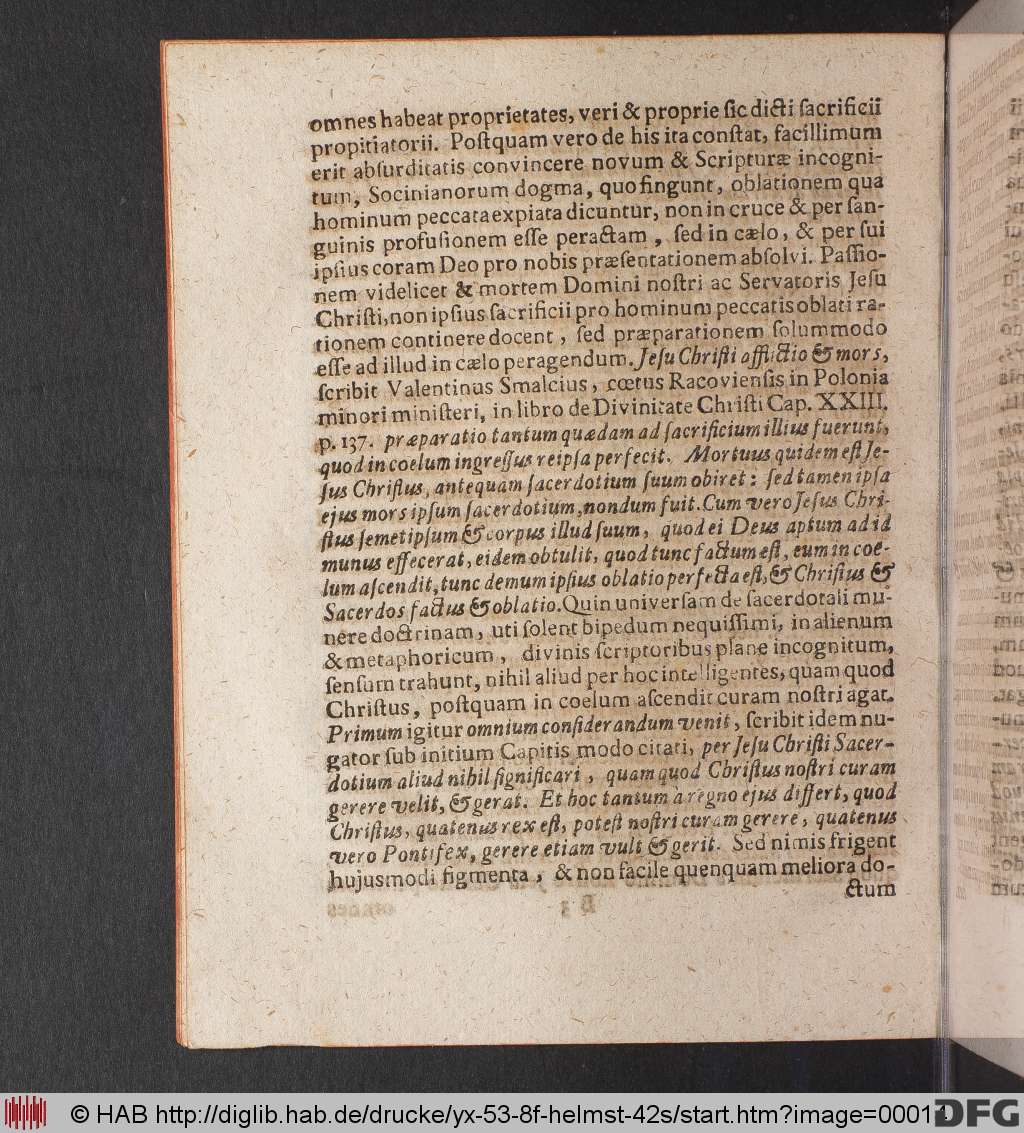 omnes habeat proprietates, veri & proprie sic dicti sacrificii
propitiatorii. Postquam vero de his ita constat, facillimum
erit absurditatis convincere novum & Scripturæ incogni-
tum, Socinianorum dogma, quo fingunt, oblationem qua
hominum peccata expiata dicuntur, non in cruce & per san-
guinis profusionem esse peractam, sed in cælo, & per sui
ipsius coram Deo pro nobis præsentationem absolvi. Passio-
nem videlicet & mortem Domini nostri ac Servatoris Jesu
Christi, non ipsius sacrificii pro hominum peccatis oblati ra-
tionem continere docent, sed præparationem solummodo
esse ad illud in cælo peragendum. Jesu Christi afflictio & mors,
scribit Valentinus Smalcius, cœtus Racoviensis in Polonia
minori ministeri, in libro de Divinitate Christi Cap. XXIII.
p. 137. præparatio tantum quædam ad sacrificium illius fuerunt,
quod in coelum ingressus reipsa perfecit. Mortuus quidem est Je-
sus Christus, antequam sacerdotium suum obiret: sed tamen ipsa
ejus mors ipsum sacerdotium, nondum fuit. Cum vero Jesus Chri-
stus semetipsum & corpus illud suum, quod ei Deus aptum ad id
munus effecerat, eidem obtulit, quod tunc factum est, eum in coe-
lum ascendit, tunc demum ipsius oblatio perfecta est, & Christus &
Sacerdos factus & oblatio. Quin universam de sacerdotali mu-
nere doctrinam, uti solent bipedum nequissimi, in alienum
& metaphoricum, divinis scriptoribus plane incognitum,
sensum trahunt, nihil aliud per hoc intelligentes, quam quod
Christus, postquam in coelum ascendit curam nostri agat.
Primum igitur omnium considerandum venit, scribit idem nu-
gator sub initium Capitis modo citati, per Jesu Christi Sacer-
dotium aliud nihil significari, quam quod Christus nostri curam
gerere velit, & gerat. Et hoc tantum à regno ejus differt, quod
Christus, quatenus rex est, potest nostri curam gerere, quatenus
vero Pontifex, gerere etiam vult & gerit. Sed nimis frigent
hujusmodi figmenta, & non facile quenquam meliora do-
ctum
© HAB http://diglib.hab.de/drucke/yx-53-8f-helmst-42s/start.htm?image=00014
DFG